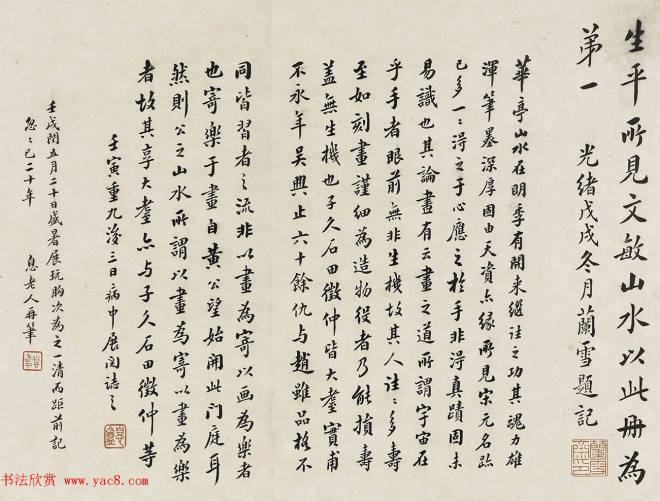 生平所見文敏山水以此册為
第一 光緒戊戌冬月蘭雪題記
華亭山水在明季有開來繼往之功其魂力雄
渾筆墨深厚固由天資亦緣所見宋元名跡
已多一一得之于心應之於手非得真蹟固未
易識也其論畫有云畫之道所謂宇宙在
乎手者眼前無非生機故其人往往多壽
至如刻畫謹細為造物役者乃能損壽
盖無生機也子久石田徵仲皆大耋實甫
不永年吳興止六十餘仇與趙雖品格不
同皆習者之流非以畫為寄以画為樂者
也寄樂于畫自黄公望始開此門庭耳
然則公之山水所謂以畫為寄以畫為樂
者故其享大耋亦与子久石田徵仲等
壬寅重九後三日病中展閱誌之
壬戌閏五月二十日盛暑展玩胸次為之一清而距前記
忽忽已二十年 息老人再筆
书法欣赏 www.yac8.com